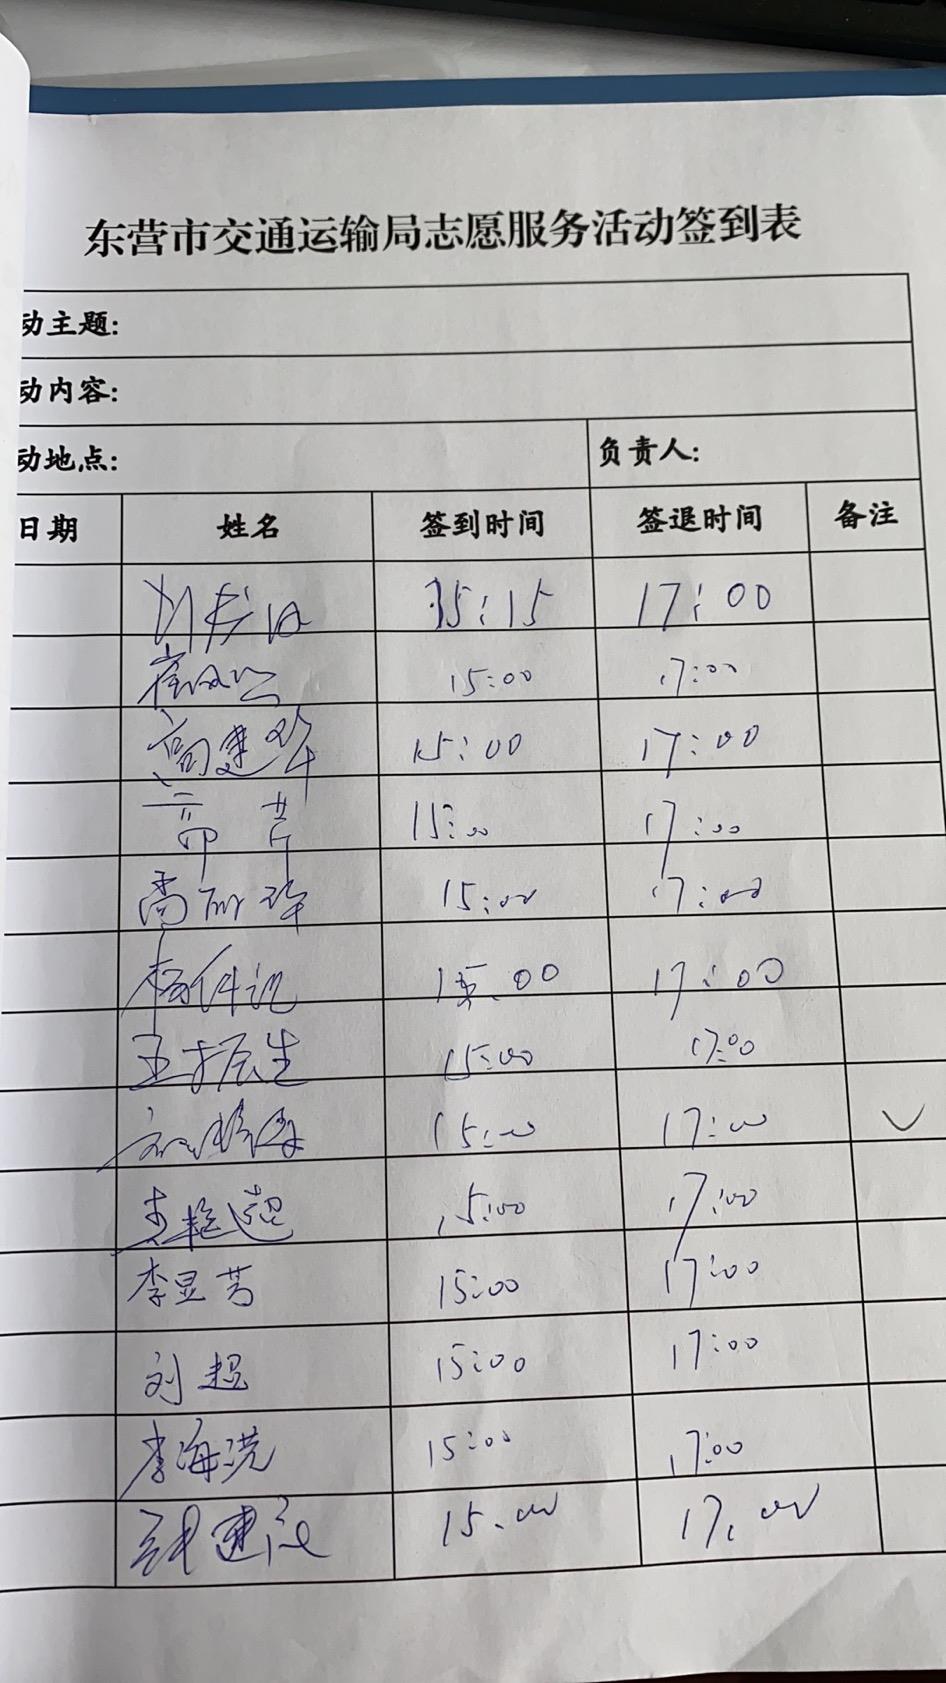 东营市交通运输局志愿服务活动签到表
动主题:
动内容:
动地点: 负责人:
日期 姓名 签到时间 签退时间 备注
15:15 17:00
15:00 17:00
高建 15:00 17:00
15:00 17:00
尚丽华 15:00 17:00
杨 15:00 17:00
王振生 15:00 17:00
15:00 17:00
超 15:00 17:00
李显芳 15:00 17:00
刘超 15:00 17:00
李海洪 15:00 17:00
建 15:00 17:00